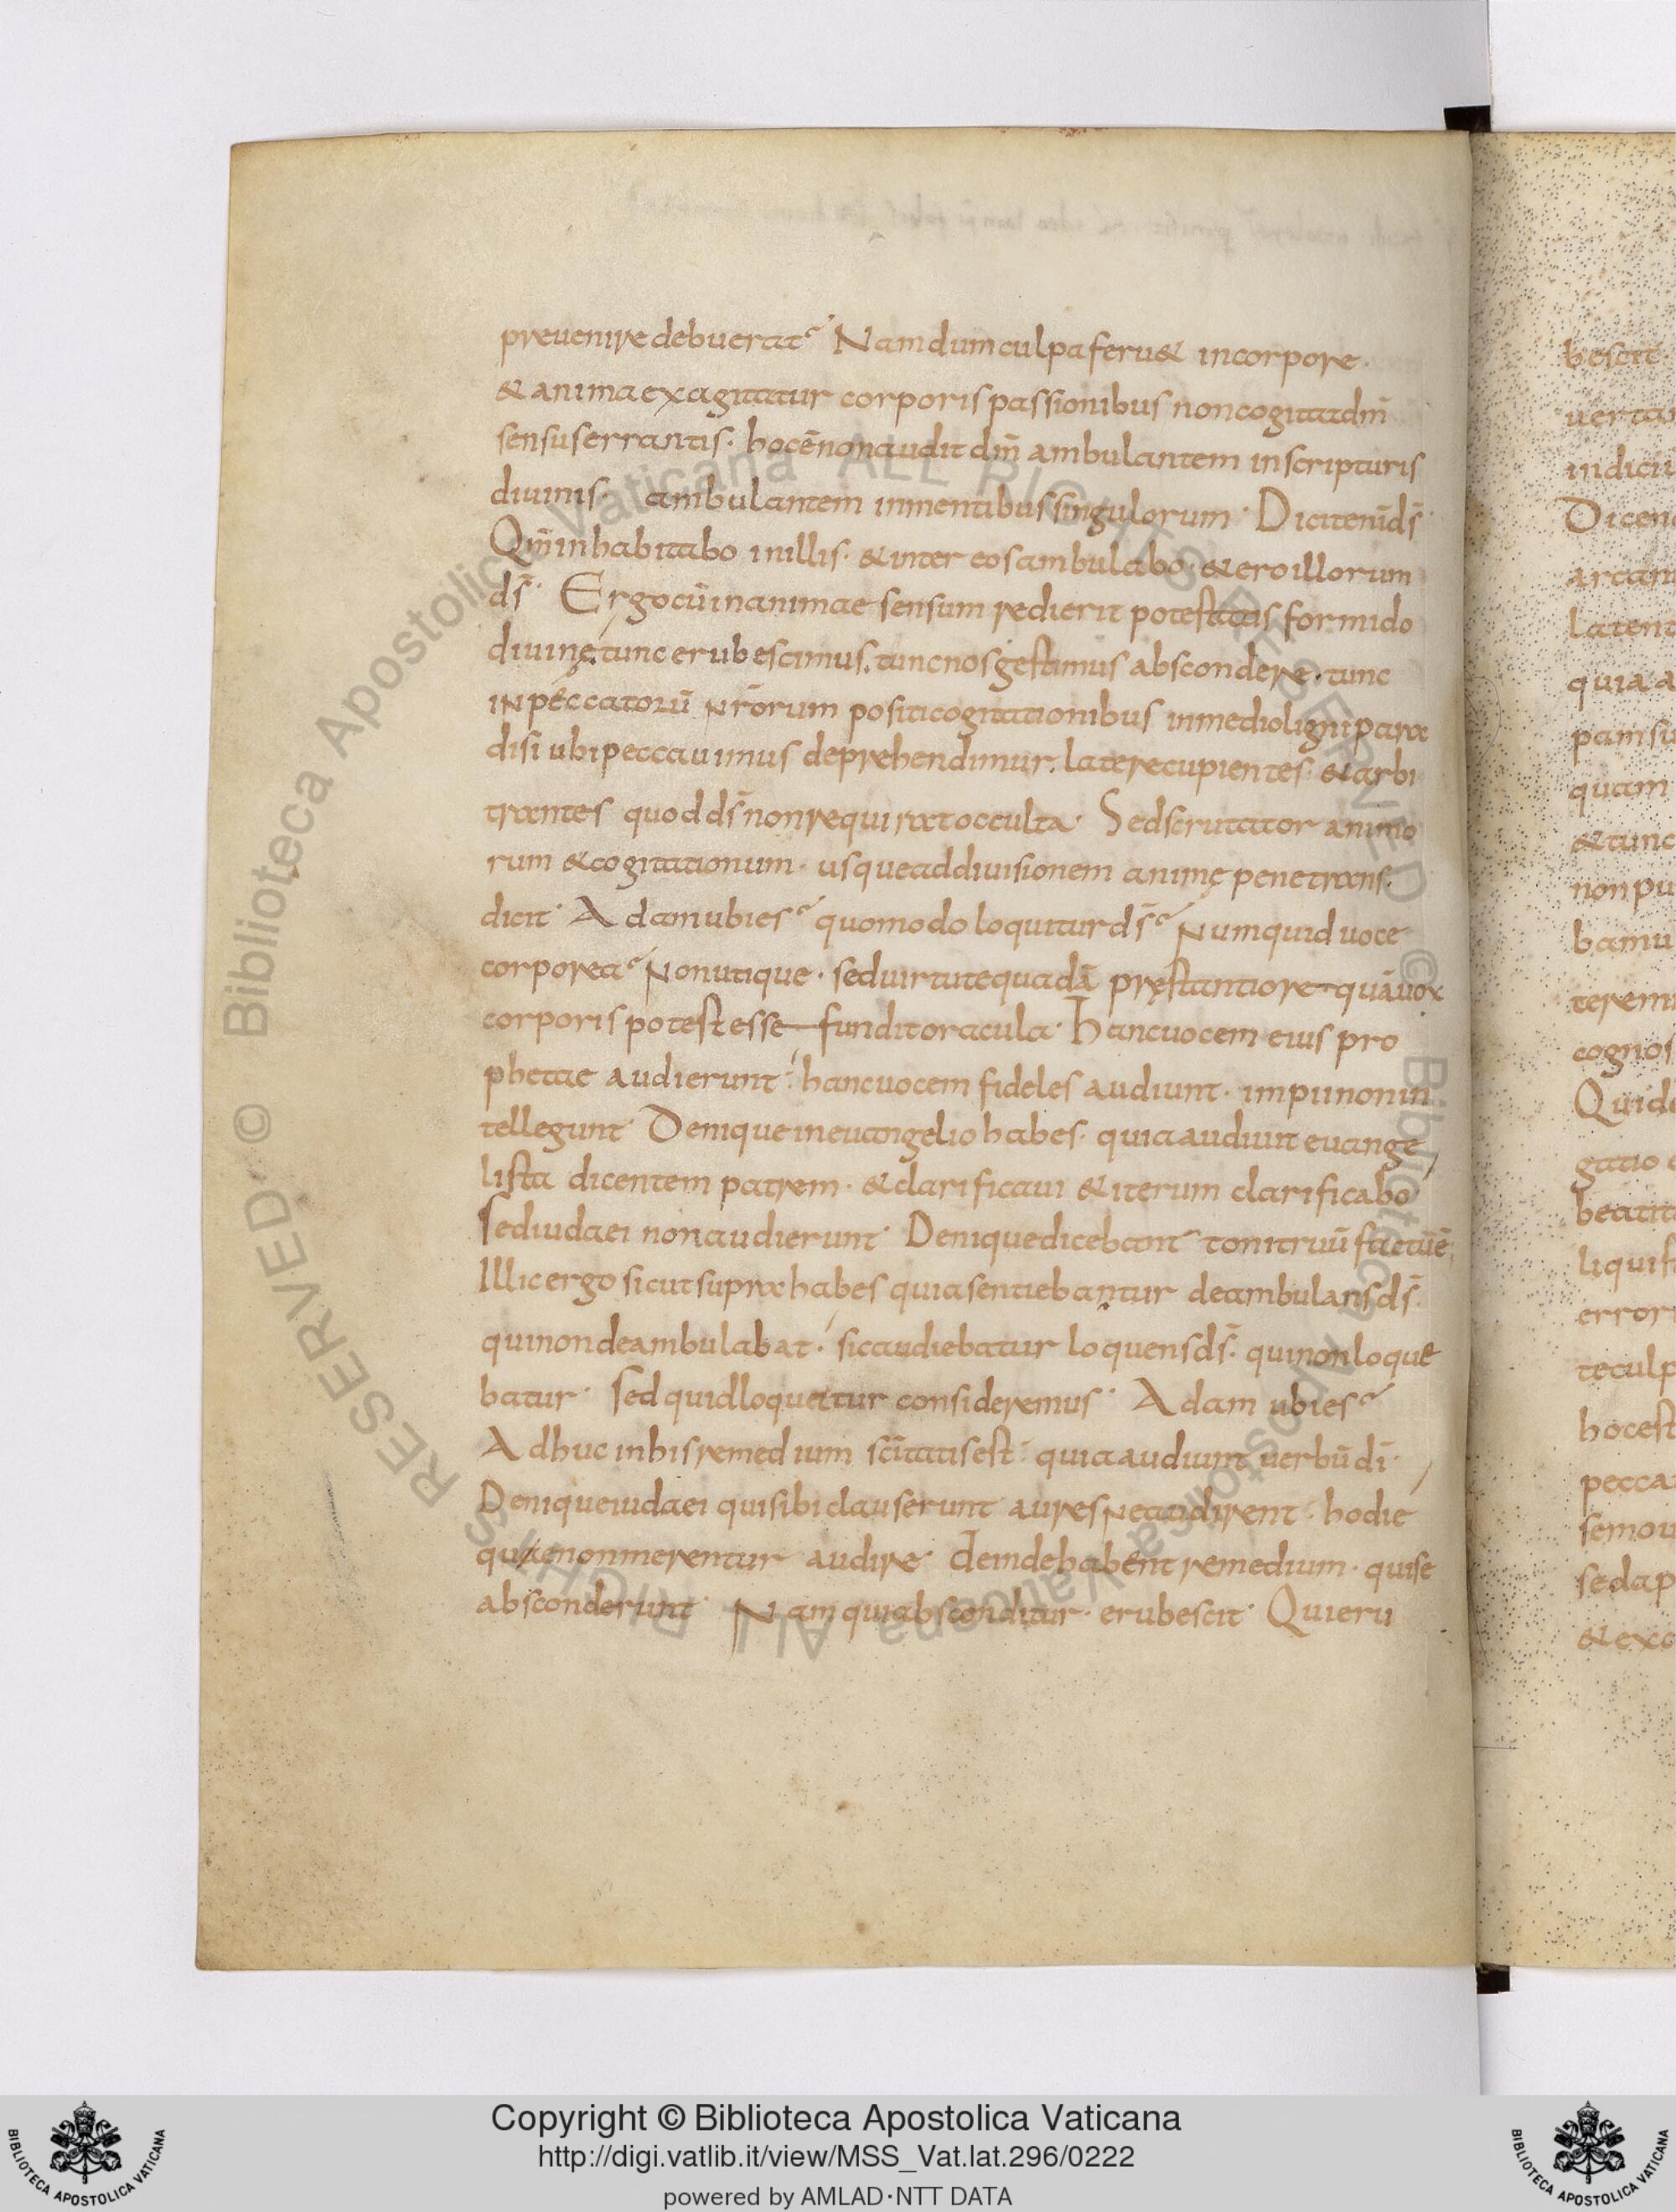 prevenire debuerat? Nam dum culpa feru& in corpore.
& anima exagitatur corporis passionibus non cogitat dm̄
sensus errantis. hoc ē non audit dm̄ ambulantem in scripturis
diuinis. ambulantem in mentibus singulorum. Dicit enī ds̄.
Qm̄ inhabitabo in illis. & inter eos ambulabo. & ero illorum
ds̄. Ergo cū in animae sensum redierit potestatis formido
diuinę, tunc erubescimus, tunc nos gestimus abscondere. tunc
in peccatorū nr̄orum positi cogitationibus in medio ligni para
disi ubi peccauimus deprehendimur. latere cupientes. & arbi
trantes quod ds̄ non requirat occulta. Sed scrutator animo
rum & cogitationum. usque ad diuisionem animę penetrans.
dicit. Adam ubi es? quomodo loquitur ds̄? Numquid uoce
corporea? Non utique. sed uirtute quadā pręstantiore quā uox
corporis potest esse fundit oracula. Hanc uocem eius pro
phetae audierunt. hanc uocem fideles audiunt. impii non in
tellegunt. Denique in euangelio habes. quia audiuit euange
lista dicentem patrem. & clarificaui & iterum clarificabo
Sed iudaei non audierunt. Denique dicebant tonitruū factū ē,
Illic ergo sicut supra habes quia sentiebantur deambulans ds̄.
qui non deambulabat. sic audiebatur loquens ds̄. qui non loque
batur. Sed quid loquetur consideremus. Adam ubi es?
Adhuc in his remedium scītatis est. quia audiunt uerbū dī.
Denique iudaei qui sibi clauserunt aures ne audirent. hodie
quae non merentur audire. deinde habent remedium. qui se
absconderunt. Nam qui absconditur. erubescit. Qui eru
bescit
uerta
indiciu
Dicen
arcan
latent
quia a
pansu
quam
& tunc
non pu
bamu
terem
cognos
Quid
gatio
beatit
liquif
error
te culp
hoc est
pecca
semou
sed ap
& exc
© Biblioteca Apostolica Vaticana ALL RIGHTS RESERVED © Biblioteca Apostolica Vaticana ALL RIGHTS RESERVED
BIBLIOTECA APOSTOLICA VATICANA
Copyright © Biblioteca Apostolica Vaticana
http://digi.vatlib.it/view/MSS_Vat.lat.296/0222
powered by AMLAD·NTT DATA
BIBLIOTECA APOSTOLICA VATICANA